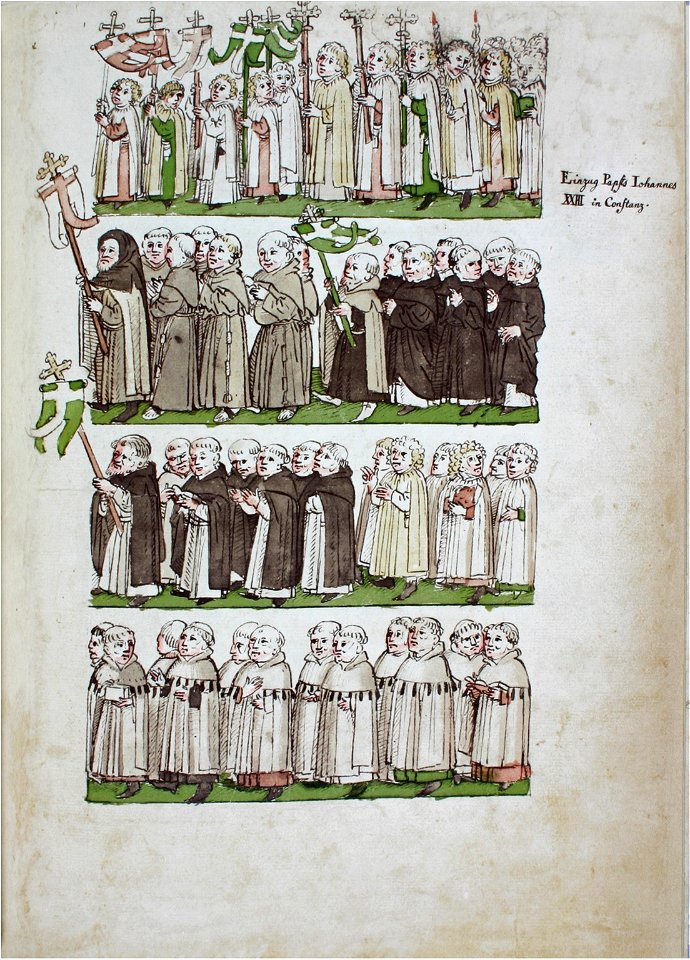 Einzug Papſts Iohannes
XXIII in Conſtanz.